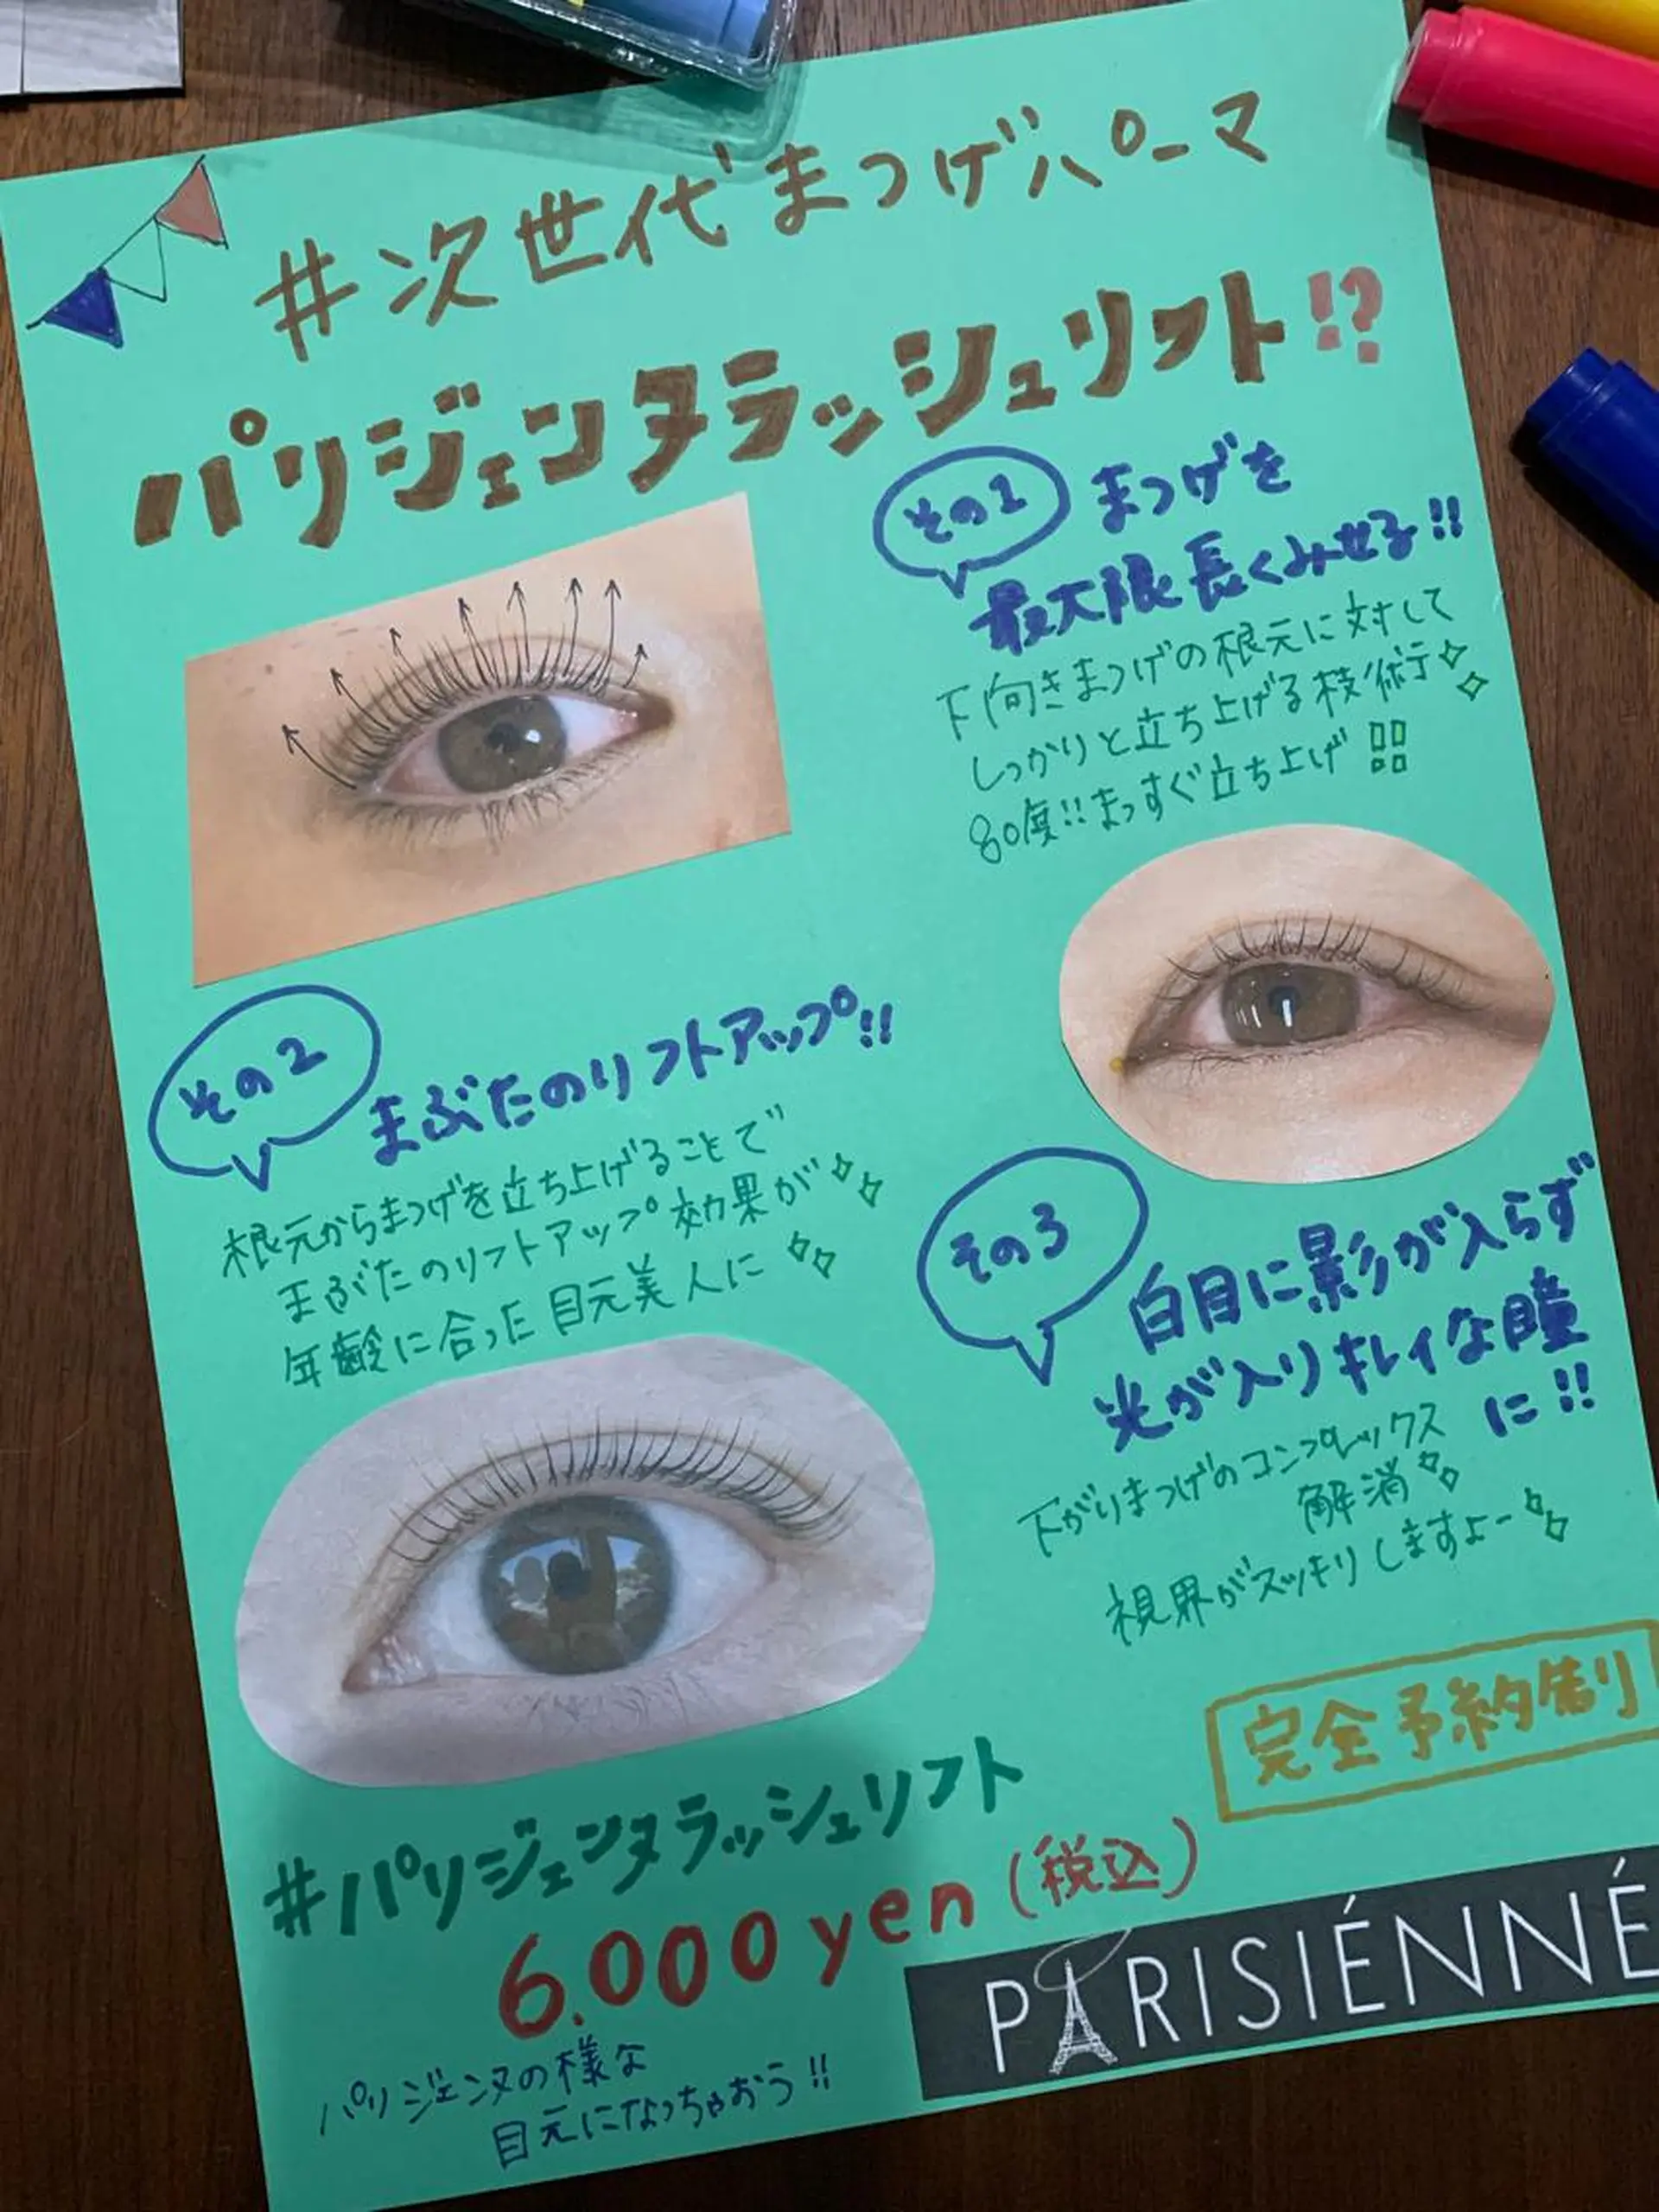 #次世代まつげパーマ
パリジェンヌラッシュリフト!?
その1 まつげを
最大限長くみせる!!
下向きまつげの根元に対して
しっかりと立ち上げる技術
80度!!まっすぐ立ち上げ!!
その2 まぶたのリフトアップ!!
根元からまつげを立ち上げることで
まぶたのリフトアップ効果が
年齢に合った目元美人に
その3 白目に影が入らず
光が入りキレイな瞳
に!!
下がりまつげのコンプレックス
解消
視界がスッキリしますよー
完全予約制
#パリジェンヌラッシュリフト
6.000yen(税込)
PARISIÉNNÉ
パリジェンヌの様な
目元になっちゃおう!!